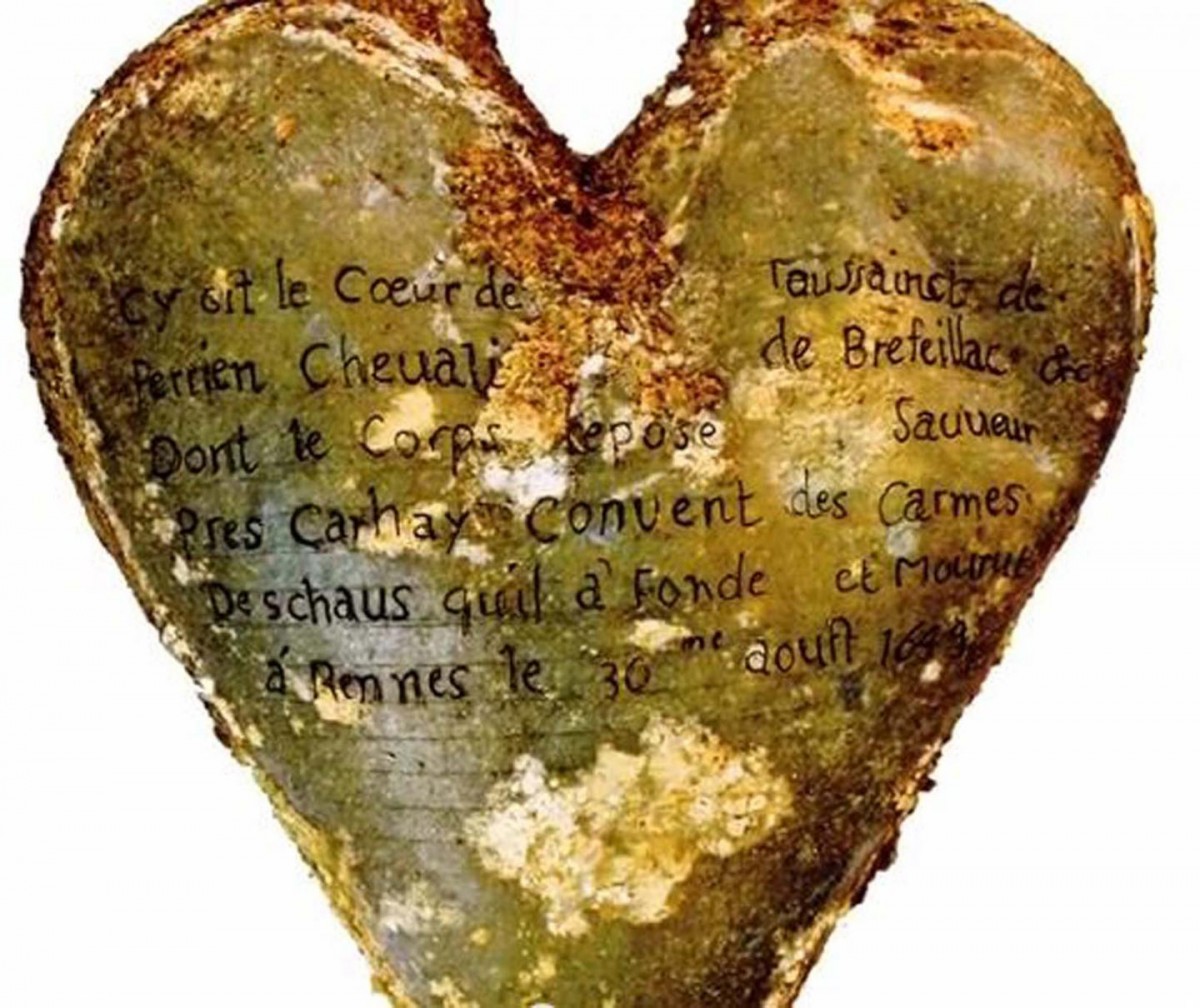 Cy git le Cœur de Taussainct de
Perrien Cheuali de Brefeillac &c
Dont le Corps repose Sauueur
Pres Carhay Convent des Carmes
Deschaus quil à Fondé et Mourut
á Rennes le 30 me aouſt 1649